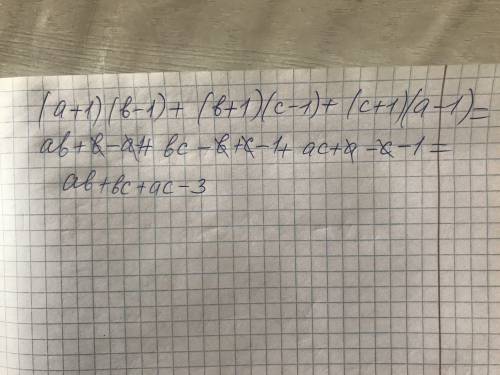 (a+1)(b-1)+(b+1)(c-1)+(c+1)(a-1)=
ab+b-a-1+bc-b+c-1+ac+a-c-1=
ab+bc+ac-3